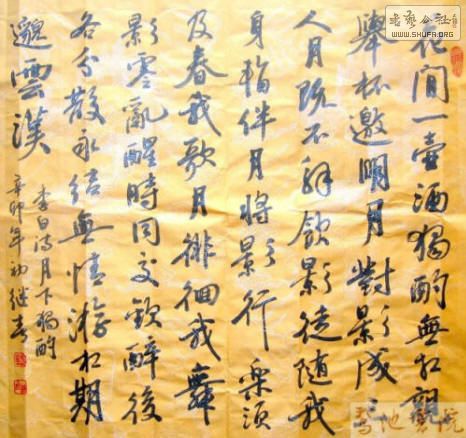 花間一壺酒獨酌無相親
舉杯邀明月對影成三
人月既不解飲影徒隨我
身暫伴月將影行樂須
及春我歌月徘徊我舞
影零亂醒時同交歡醉後
各分散永結無情遊相期
邈雲漢
李白诗月下獨酌
辛卯年初继
書藝公社
WWW.SHUFA.ORG